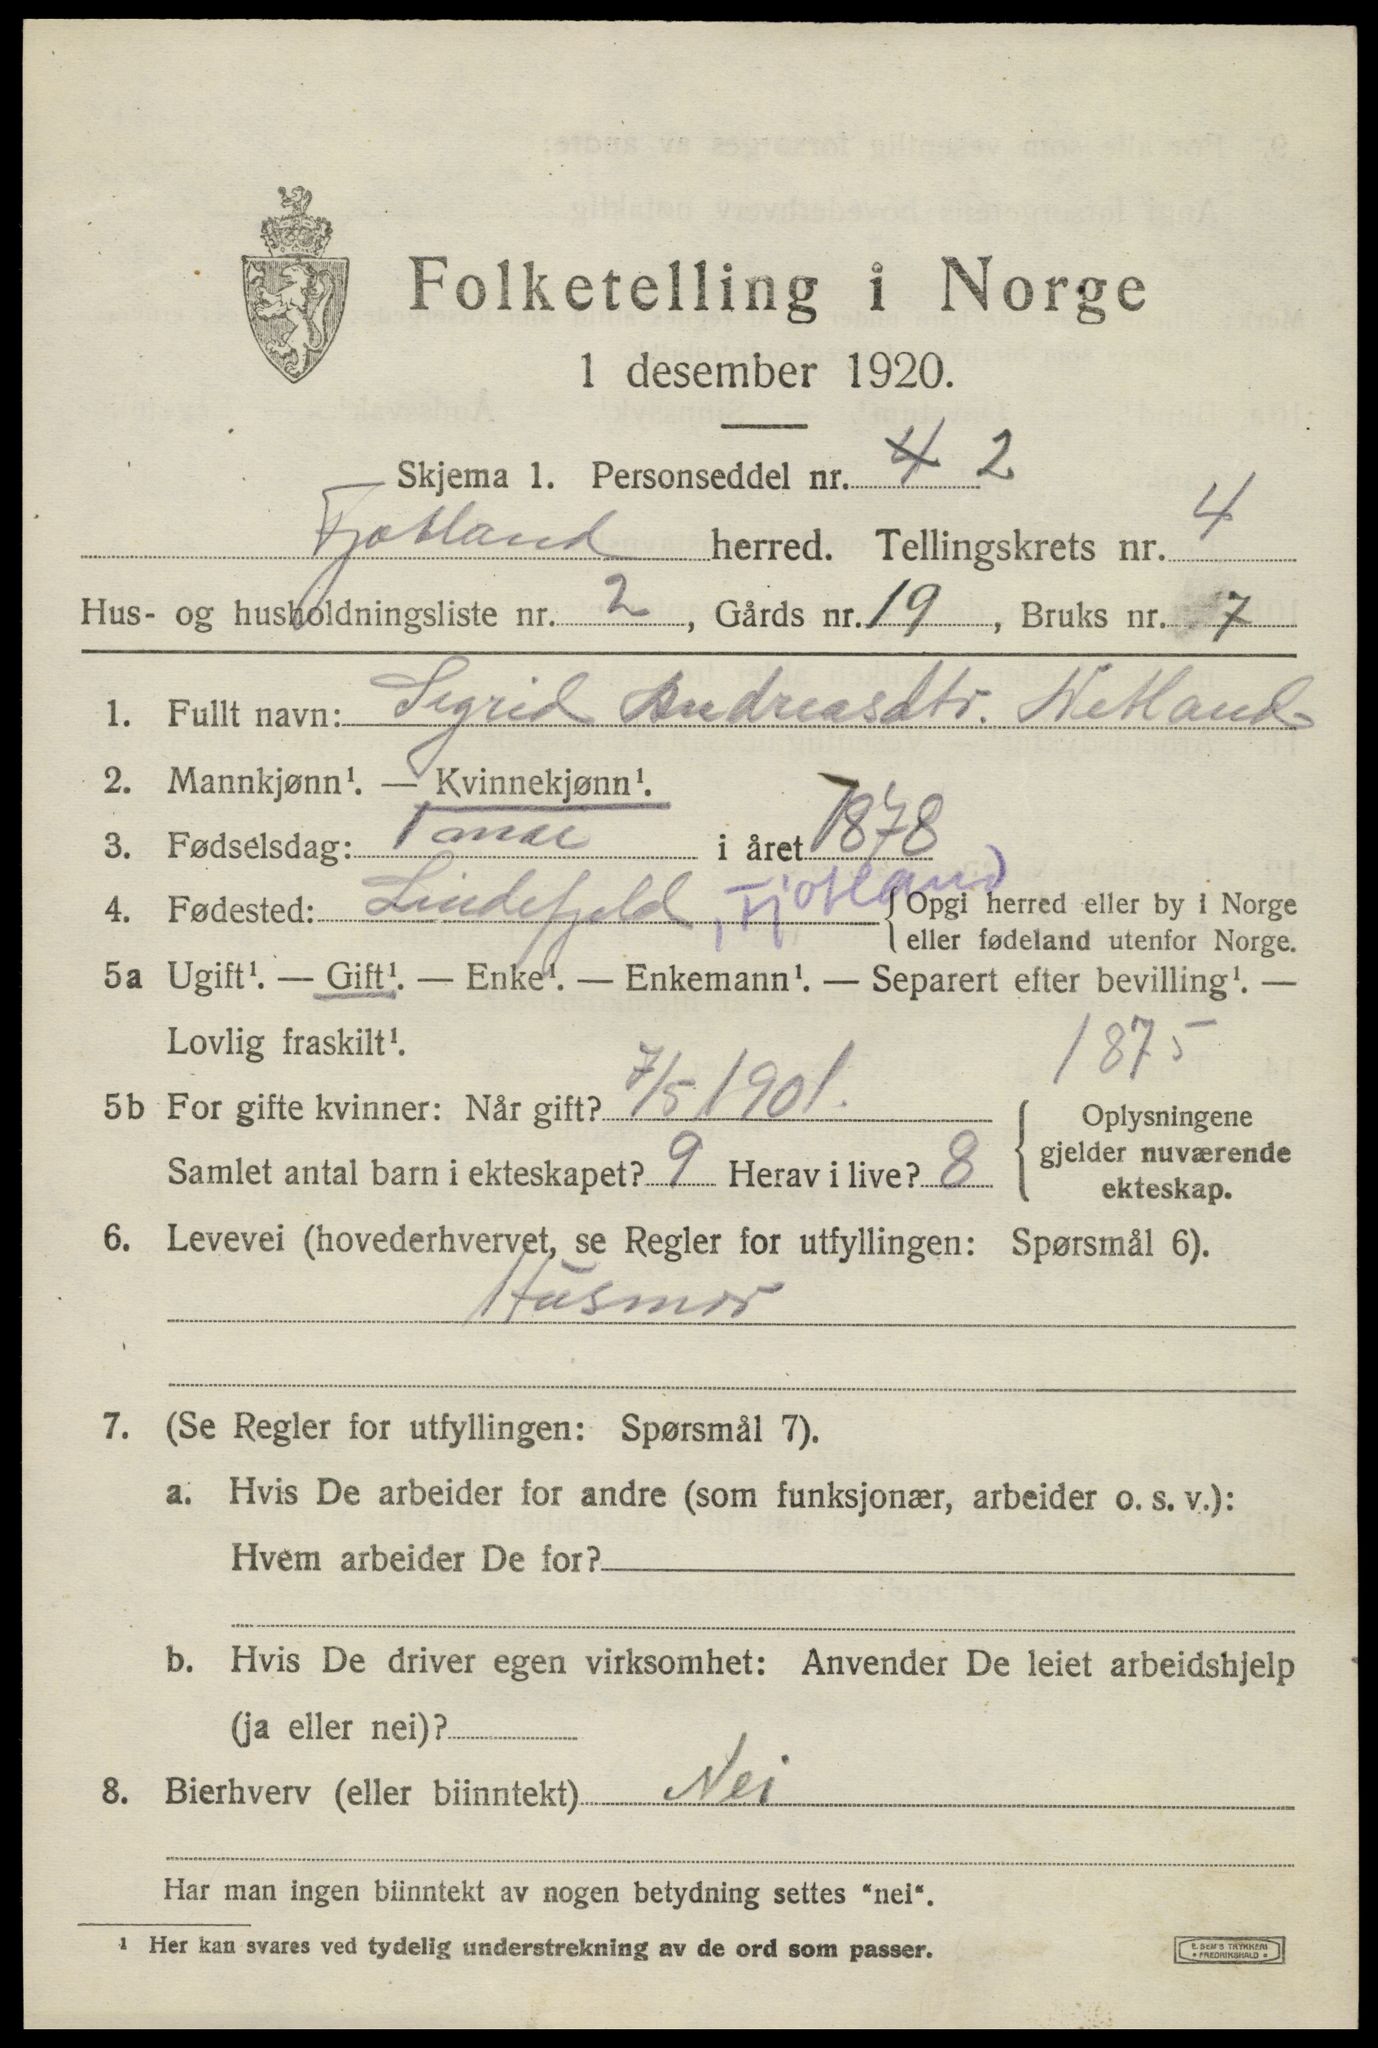 Folketelling i Norge
1 desember 1920.
Skjema 1. Personseddel nr. 4 2
Fjotland herred. Tellingskrets nr. 4
Hus- og husholdningsliste nr. 2, Gårds nr. 19, Bruks nr. 7
1. Fullt navn: Sigrid Andreasdtr. Netland
2. Mannkjønn¹. — Kvinnekjønn¹.
3. Fødselsdag: 1 mai i året 1878
4. Fødested: Lindefjeld, Fjotland {Opgi herred eller by i Norge
eller fødeland utenfor Norge.
5a Ugift¹. — Gift¹. — Enke¹. — Enkemann¹. — Separert efter bevilling¹. —
Lovlig fraskilt¹.
1875
5b For gifte kvinner: Når gift? 7/5 1901.
Samlet antal barn i ekteskapet? 9 Herav i live? 8
{ Oplysningene
gjelder nuværende
ekteskap.
6. Levevei (hovederhvervet, se Regler for utfyllingen: Spørsmål 6).
Husmor
7. (Se Regler for utfyllingen: Spørsmål 7).
a. Hvis De arbeider for andre (som funksjonær, arbeider o. s. v.):
Hvem arbeider De for?
b. Hvis De driver egen virksomhet: Anvender De leiet arbeidshjelp
(ja eller nei)?
8. Bierhverv (eller biinntekt) Nei
Har man ingen biinntekt av nogen betydning settes "nei".
¹ Her kan svares ved tydelig understrekning av de ord som passer.
E. SEM'S TRYKKERI
* FREDRIKSHALD *